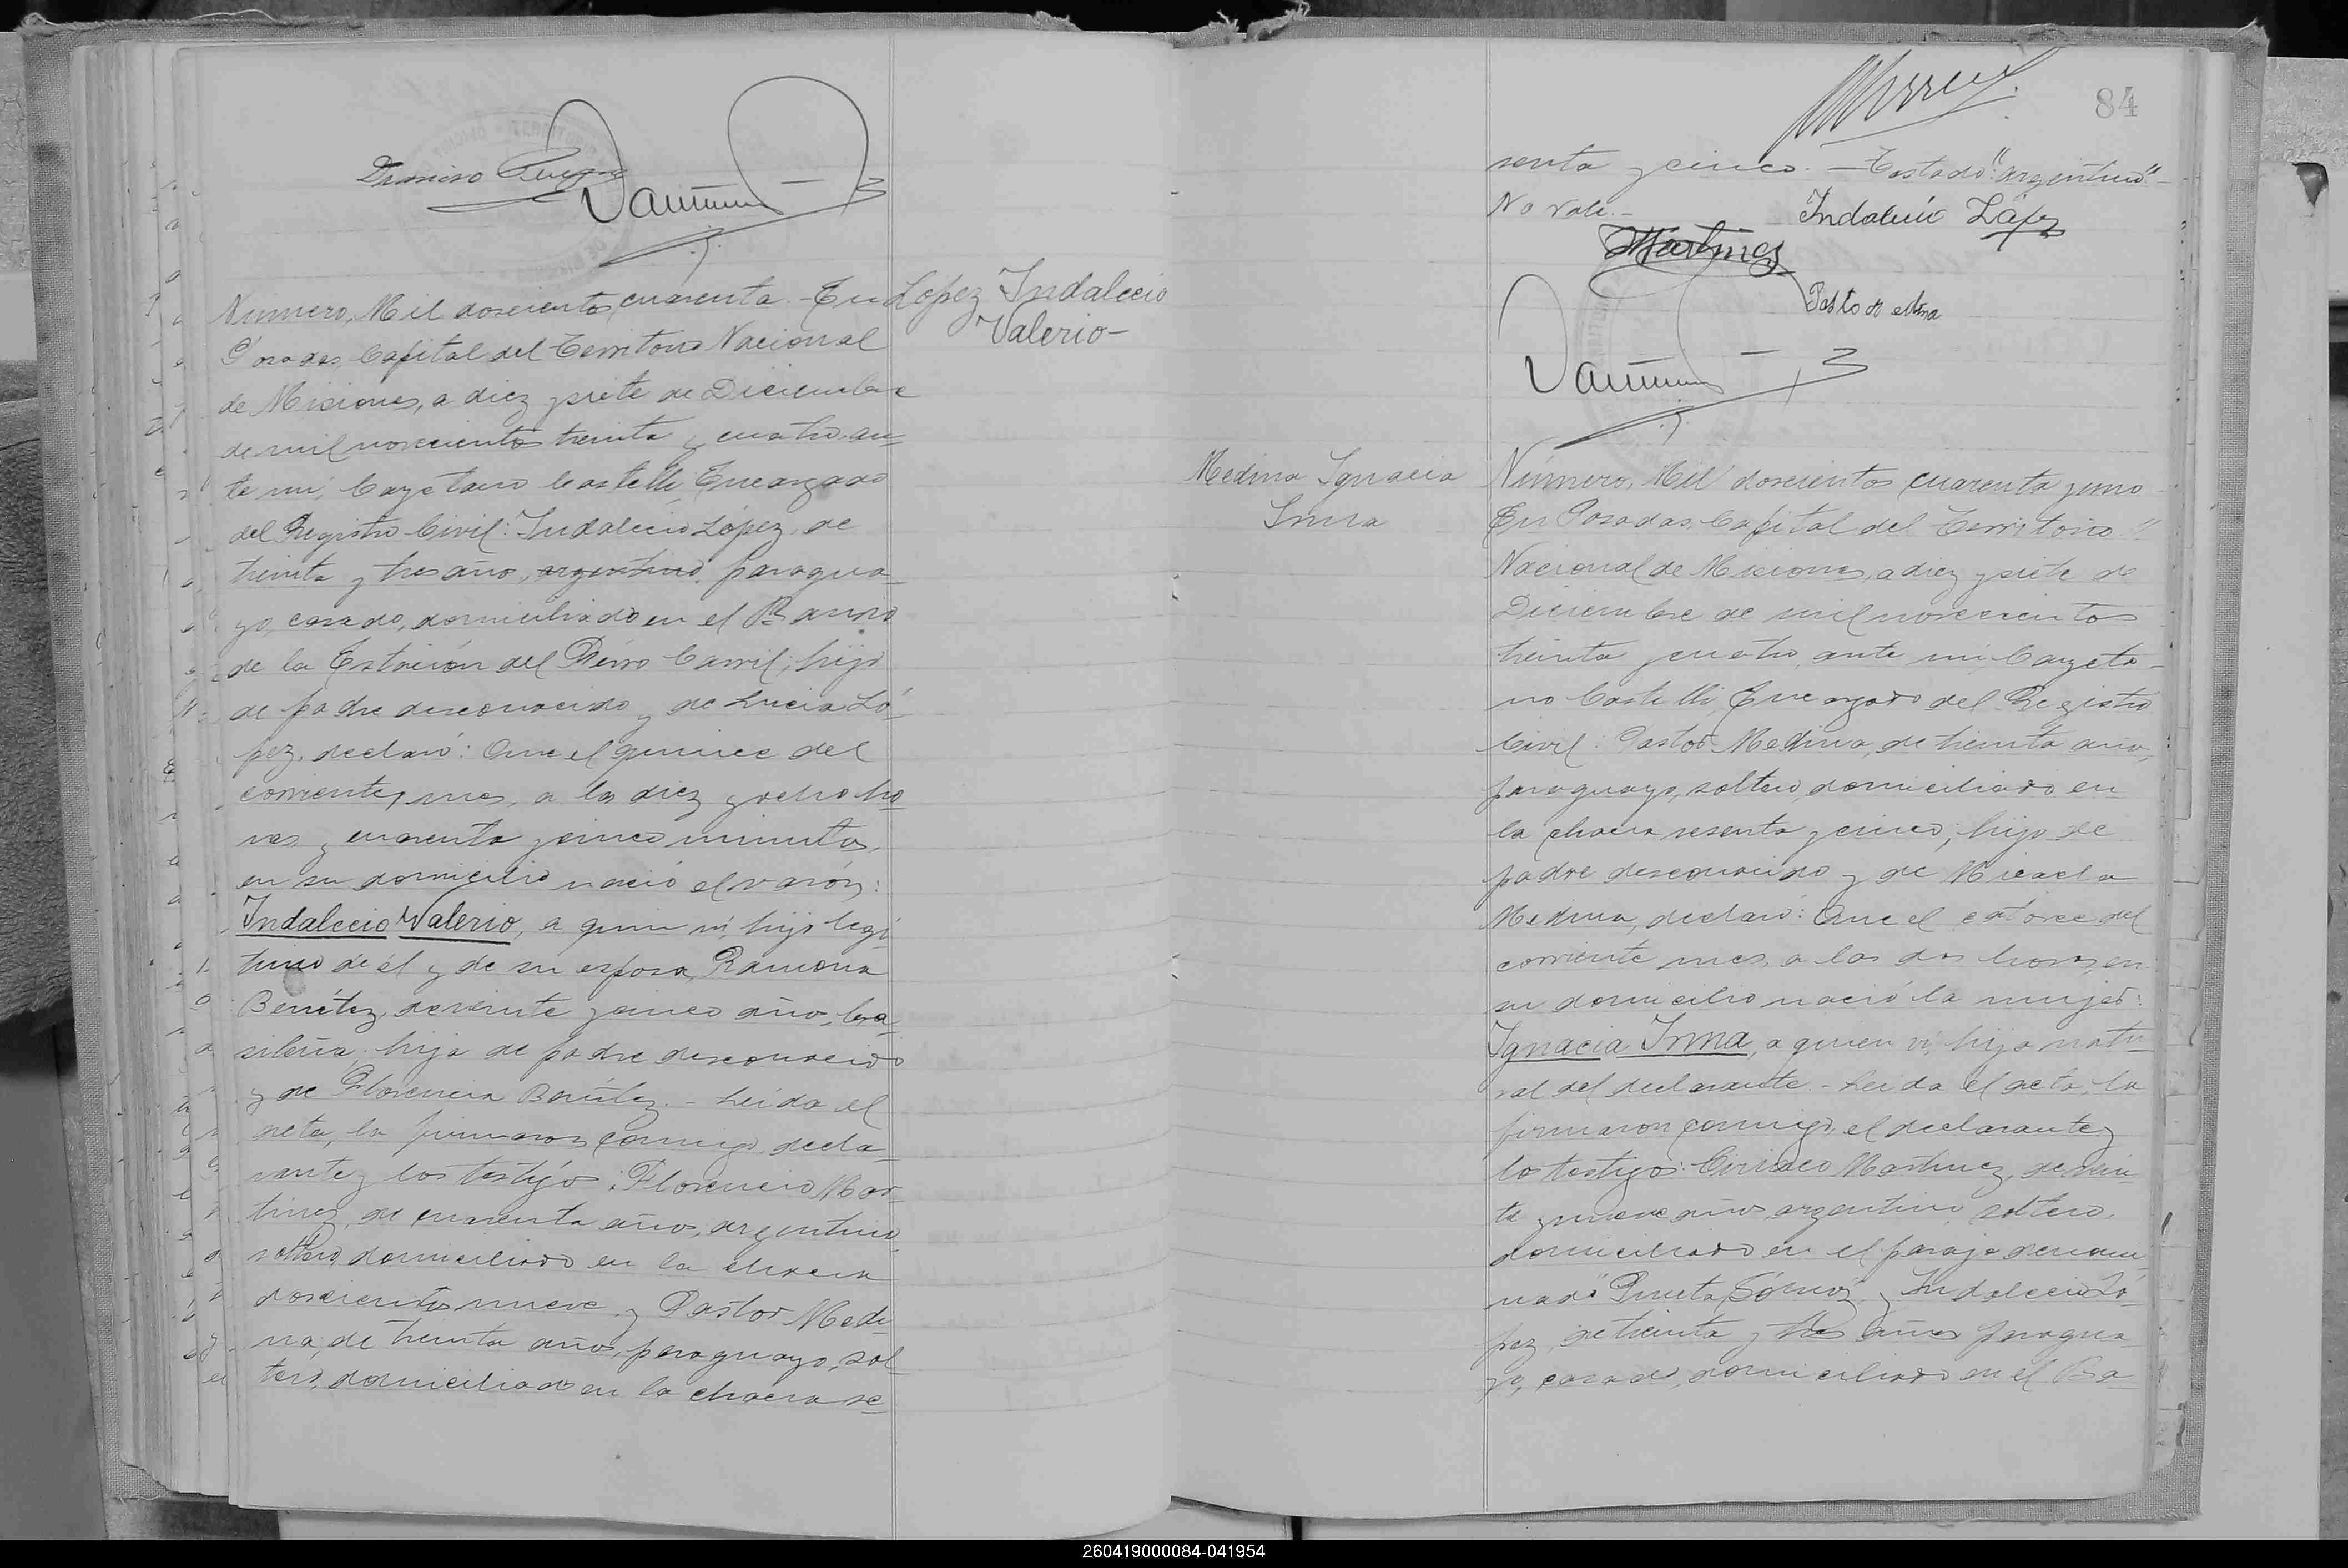 Número, Mil doscientos cuarenta.- En
Posadas, Capital del Territorio Nacional
de Misiones, a diez y siete de Diciembre
de mil novecientos treinta y cuatro, an-
te mí, Cayetano Castelli, Encargado
del Registro Civil: Indalecio López, de
treinta y tres años, argentino, paragua-
yo, casado, domiciliado en el Barrio
de la Estación del Ferro Carril, hijo
de padre desconocido y de Lucia Ló-
pez, declaró: Que el quince del
corriente, mes, a las diez y ocho ho-
ras y cuarenta y cinco minutos,
en su domicilio nació el varón:
Indalecio Valerio, a quien ví, hijo legí-
timo de él y de su esposa, Ramona
Benítez, de veinte y cinco años, bra-
sileña, hija de padre desconocido
y de Florencia Benítez.- Leída el
acta, la firmaron conmigo, decla-
rante y los testigos: Florencio Mar-
tinez, de cuarenta años, argentino,
soltero, domiciliado en la chacra
doscientos nueve y Pastor Medi-
na, de treinta años, paraguayo, sol-
tero, domiciliado en la chacra se-
López Indalecio
Valerio-
84
senta y cinco.- Testado: "argentino"-
No vale.-
Indalecio López
Martinez
Pastor Medina
Medina Ignacia
Irma
Número, Mil doscientos cuarenta y uno
En Posadas, Capital del Territorio
Nacional de Misiones, a diez y siete de
Diciembre de mil novecientos
treinta y cuatro, ante mí, Cayeta-
no Castelli, Encargado del Registro
Civil: Pastor Medina, de treinta años,
paraguayo, soltero, domiciliado en
la chacra sesenta y cinco, hijo de
padre desconocido y de Micaela
Medina, declaró: Que el catorce del
corriente mes, a las dos horas, en
su domicilio nació la mujer:
Ignacia Irma, a quien ví, hija natu-
ral del declarante.- Leída el acta, la
firmaron conmigo, el declarante y
los testigos: Ciriaco Martinez, de vein-
te y nueve años, argentino, soltero,
domiciliado en el paraje denomi-
nado "Punta Gómez" y Indalecio Ló-
pez, de treinta y tres años, paragua-
yo, casado, domiciliado en el Ba-
260419000084-041954